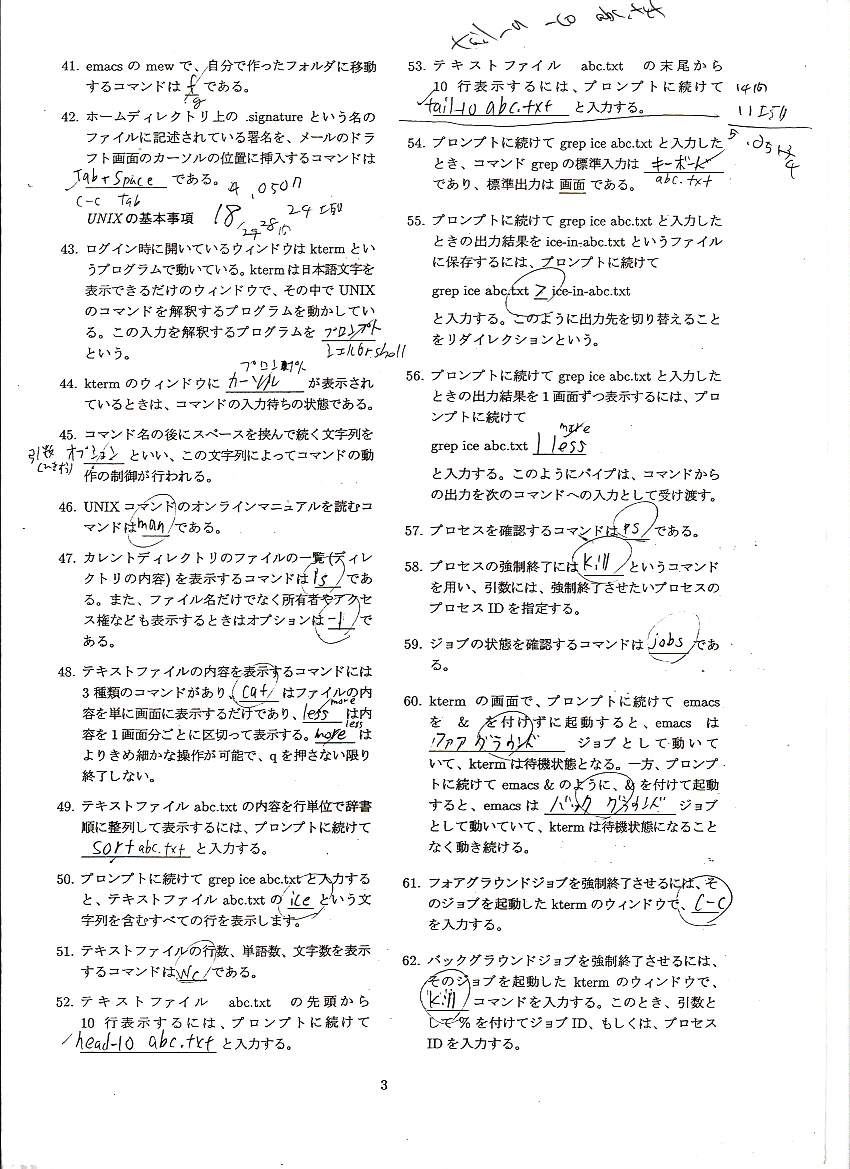 tail -n -10 abc.txt
41. emacs の mew で、自分で作ったフォルダに移動
するコマンドは f である。
g
42. ホームディレクトリ上の .signature という名の
ファイルに記述されている署名を、メールのドラ
フト画面のカーソルの位置に挿入するコマンドは
Tab+Space である。
C-c tab
UNIX の基本事項
43. ログイン時に開いているウィンドウは kterm とい
うプログラムで動いている。kterm は日本語文字を
表示できるだけのウィンドウで、その中で UNIX
のコマンドを解釈するプログラムを動かしてい
る。この入力を解釈するプログラムを プロンプト
という。
シェル or shell
44. kterm のウィンドウに カーソル が表示され
ているときは、コマンドの入力待ちの状態である。
45. コマンド名の後にスペースを挟んで続く文字列を
引数 オプション といい、この文字列によってコマンドの動
作の制御が行われる。
46. UNIX コマンドのオンラインマニュアルを読むコ
マンドは man である。
47. カレントディレクトリのファイルの一覧 (ディレ
クトリの内容) を表示するコマンドは ls であ
る。また、ファイル名だけでなく所有者やアクセ
ス権なども表示するときはオプションは -l で
ある。
48. テキストファイルの内容を表示するコマンドには
3 種類のコマンドがあり、cat はファイルの内
容を単に画面に表示するだけであり、less more は内
容を 1 画面分ごとに区切って表示する。more less は
よりきめ細かな操作が可能で、q を押さない限り
終了しない。
49. テキストファイル abc.txt の内容を行単位で辞書
順に整列して表示するには、プロンプトに続けて
sort abc.txt と入力する。
50. プロンプトに続けて grep ice abc.txt と入力する
と、テキストファイル abc.txt の ice という文
字列を含むすべての行を表示します。
51. テキストファイルの行数、単語数、文字数を表示
するコマンドは wc である。
52. テキストファイル abc.txt の先頭から
10 行表示するには、プロンプトに続けて
head-10 abc.txt と入力する。
53. テキストファイル abc.txt の末尾から
10 行表示するには、プロンプトに続けて
tail-10 abc.txt と入力する。
54. プロンプトに続けて grep ice abc.txt と入力した
とき、コマンド grep の標準入力は キーボード
abc.txt
であり、標準出力は 画面 である。
55. プロンプトに続けて grep ice abc.txt と入力した
ときの出力結果を ice-in-abc.txt というファイル
に保存するには、プロンプトに続けて
grep ice abc.txt > ice-in-abc.txt
と入力する。このように出力先を切り替えること
をリダイレクションという。
56. プロンプトに続けて grep ice abc.txt と入力した
ときの出力結果を 1 画面ずつ表示するには、プロ
ンプトに続けて
more
grep ice abc.txt | less
と入力する。このようにパイプは、コマンドから
の出力を次のコマンドへの入力として受け渡す。
57. プロセスを確認するコマンドは ps である。
58. プロセスの強制終了には kill というコマンド
を用い、引数には、強制終了させたいプロセスの
プロセス ID を指定する。
59. ジョブの状態を確認するコマンドは jobs であ
る。
60. kterm の画面で、プロンプトに続けて emacs
を & を付けずに起動すると、emacs は
フォアグラウンド ジョブとして動いて
いて、kterm は待機状態となる。一方、プロンプ
トに続けて emacs & のように、& を付けて起動
すると、emacs は バックグラウンド ジョブ
として動いていて、kterm は待機状態になること
なく動き続ける。
61. フォアグラウンドジョブを強制終了させるには、そ
のジョブを起動した kterm のウィンドウで、C-C
を入力する。
62. バックグラウンドジョブを強制終了させるには、
そのジョブを起動した kterm のウィンドウで、
kill コマンドを入力する。このとき、引数と
して % を付けてジョブ ID、もしくは、プロセス
ID を入力する。
3